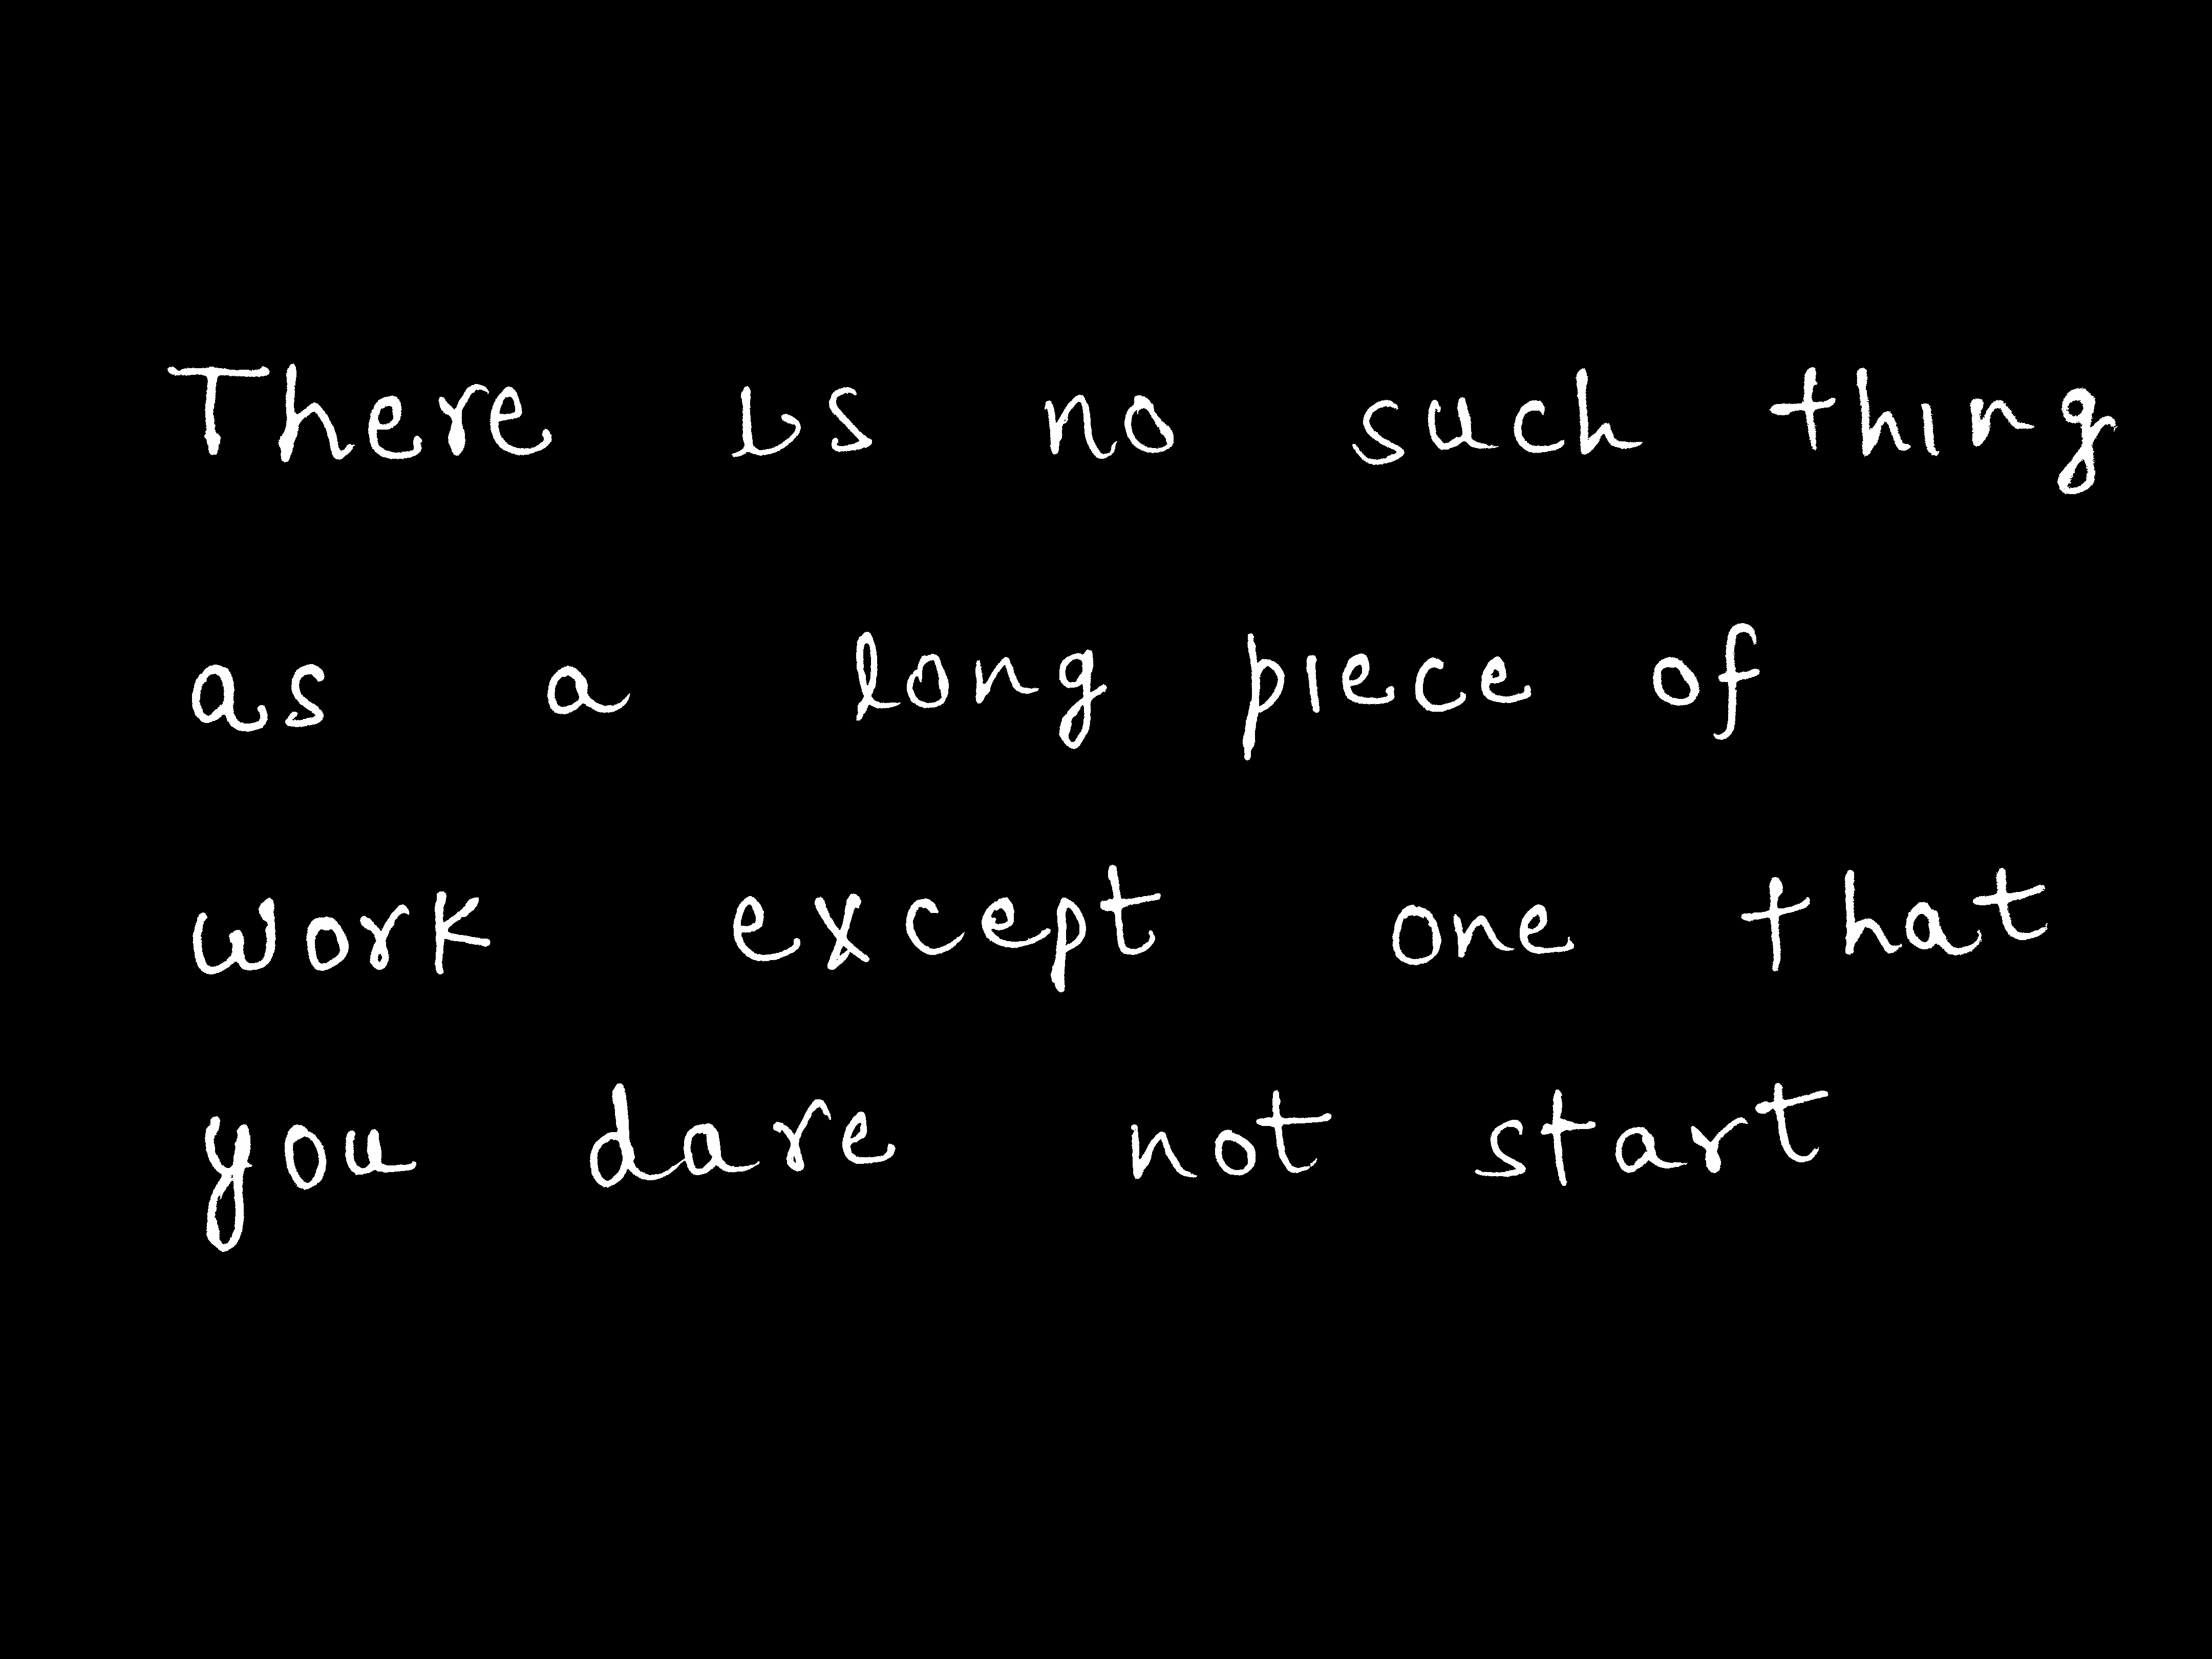 There is no such thing
as a long piece of
work except one that
you dare not start